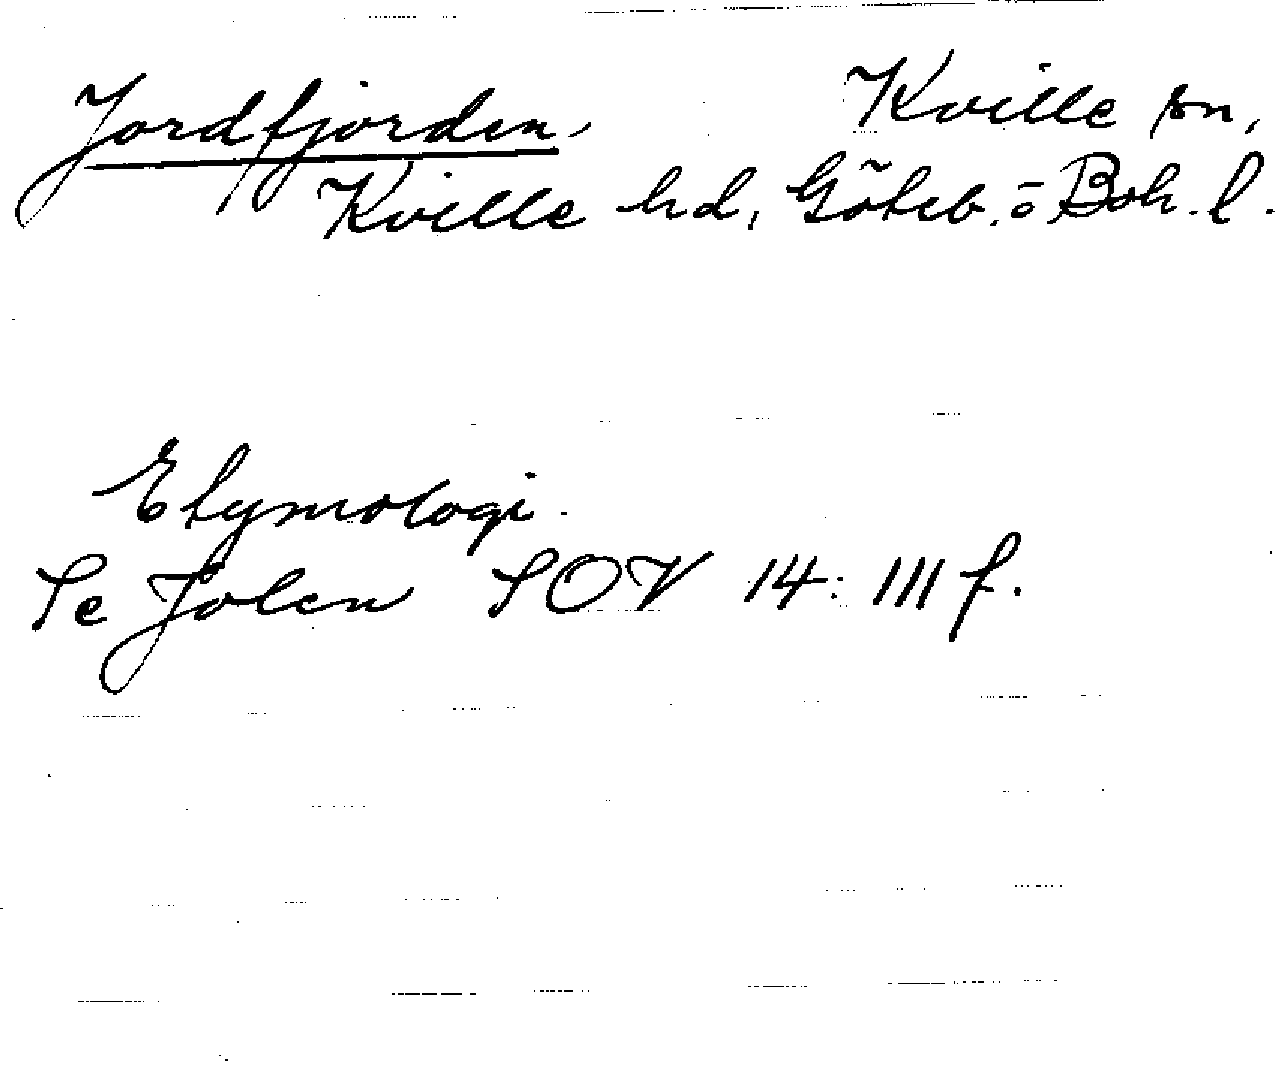 Jordfjorden, Kville sn,
Kville hd, Göteb. o Boh. l.
Etymologi.
Se Jolen SOV 14: 111 f.